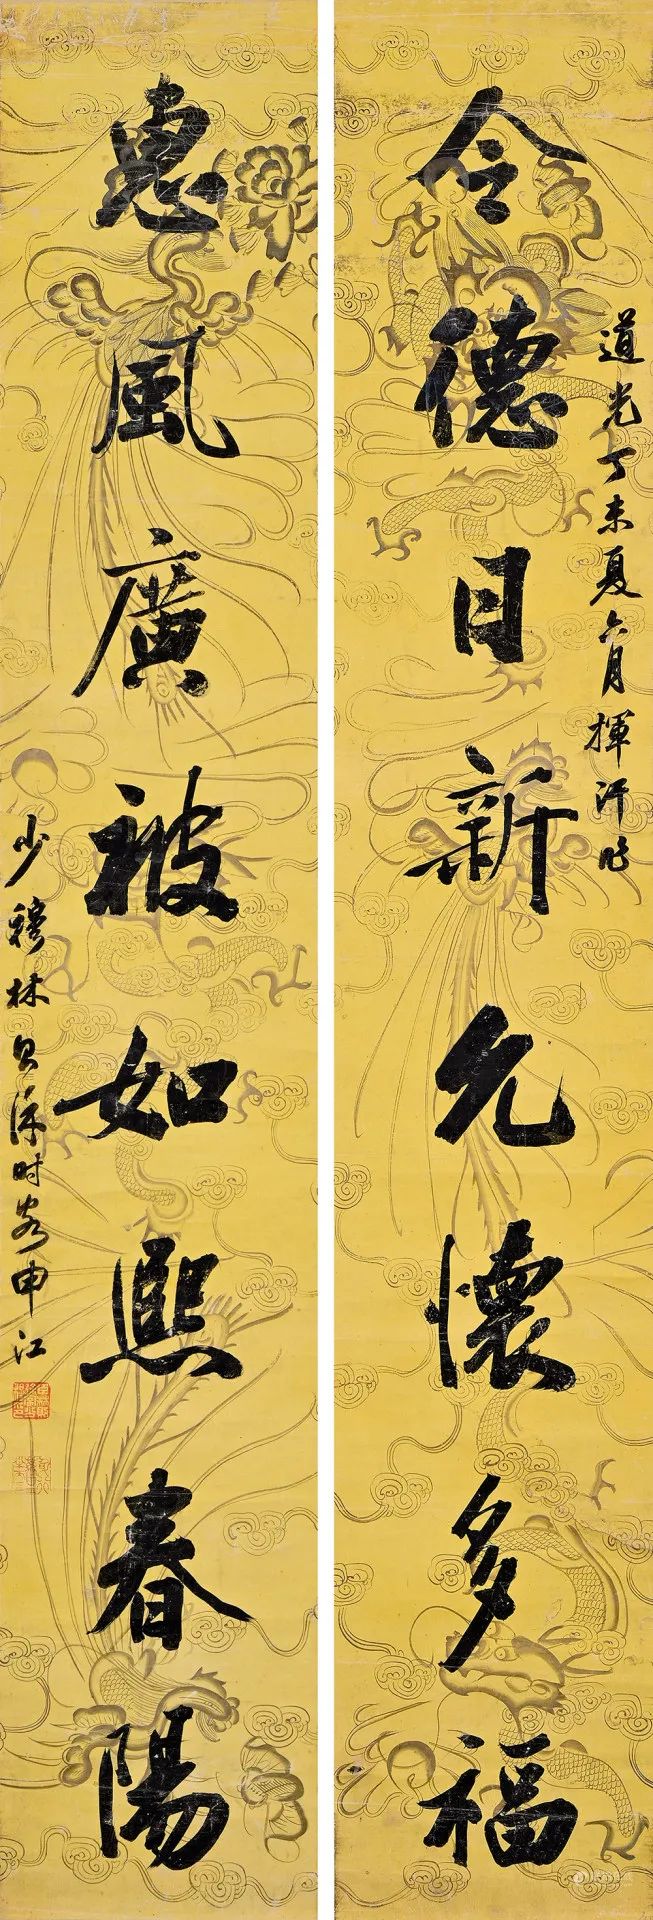 令德日新允懷多福
道光丁未夏六月揮汗作
惠風廣被如熙春陽
少穆林則徐時客申江